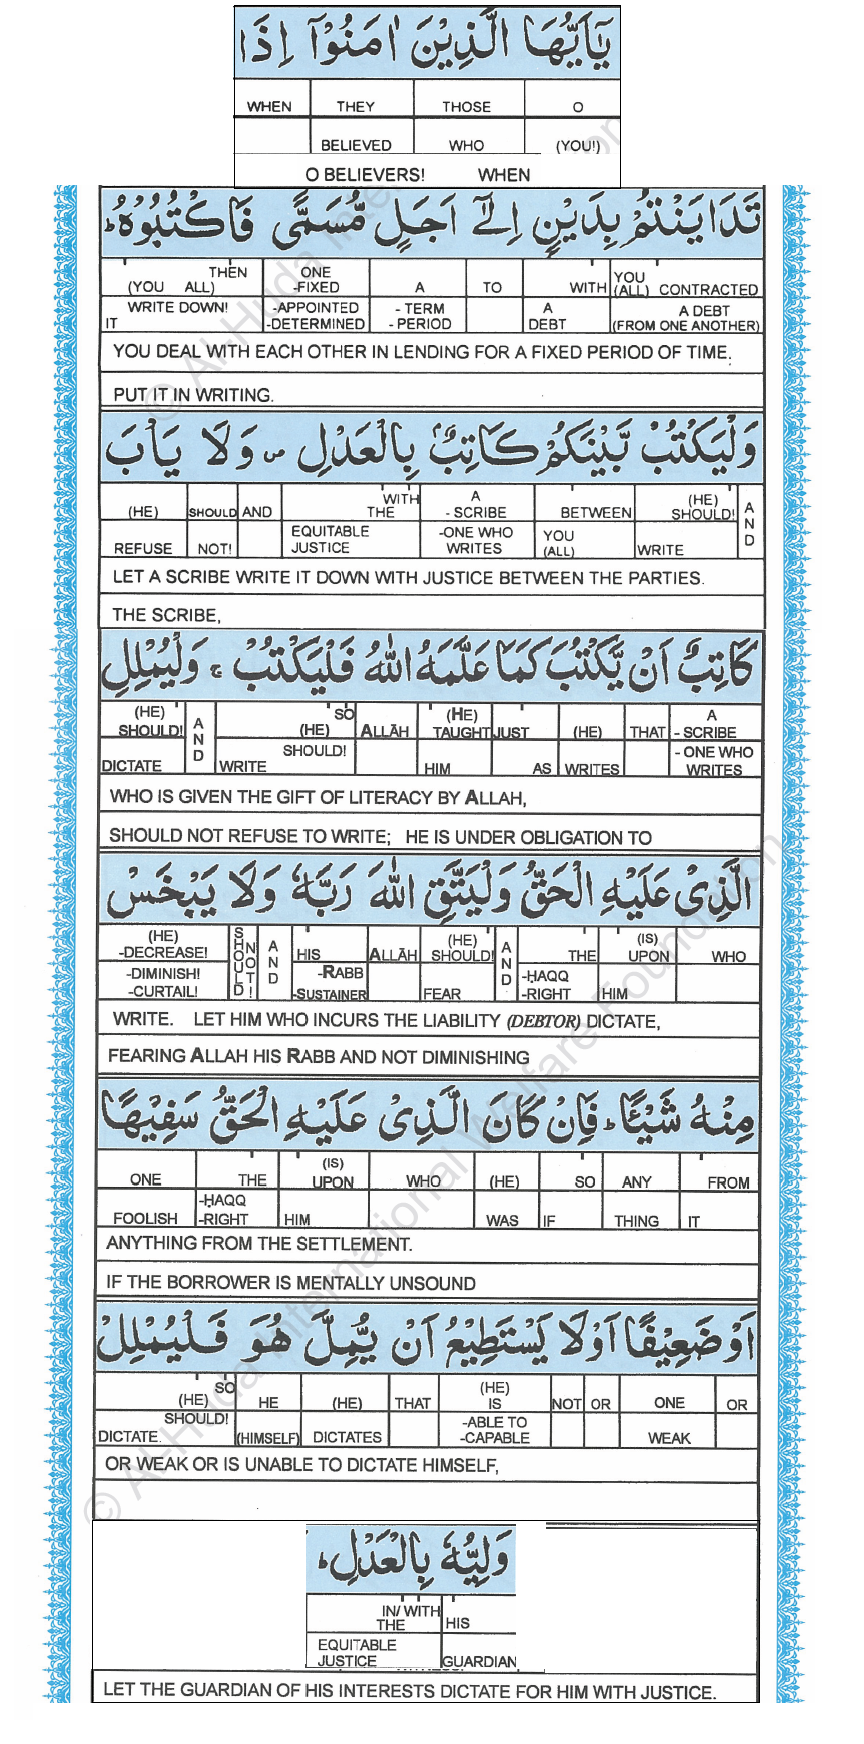 يَٰٓأَيُّهَا الَّذِيْنَ اٰمَنُوْٓا اِذَا
WHEN THEY THOSE O
BELIEVED WHO (YOU!)
O BELIEVERS! WHEN
تَدَايَنْتُمْ بِدَيْنٍ اِلٰٓى اَجَلٍ مُّسَمًّى فَاكْتُبُوْهُ ط
(YOU ALL) THEN ONE -FIXED A TO WITH YOU (ALL) CONTRACTED
IT WRITE DOWN! -APPOINTED -DETERMINED - TERM - PERIOD A DEBT A DEBT (FROM ONE ANOTHER)
YOU DEAL WITH EACH OTHER IN LENDING FOR A FIXED PERIOD OF TIME.
PUT IT IN WRITING.
وَلْيَكْتُبْ بَّيْنَكُمْ كَاتِبٌ بِالْعَدْلِ ص وَلَا يَأْبَ
(HE) SHOULD AND WITH THE A - SCRIBE BETWEEN (HE) SHOULD! AND
REFUSE NOT! EQUITABLE JUSTICE -ONE WHO WRITES YOU (ALL) WRITE
LET A SCRIBE WRITE IT DOWN WITH JUSTICE BETWEEN THE PARTIES.
THE SCRIBE,
كَاتِبٌ اَنْ يَّكْتُبَ كَمَا عَلَّمَهُ اللّٰهُ فَلْيَكْتُبْ ج وَلْيُمْلِلِ
(HE) SHOULD! AND SO (HE) ALLĀH (HE) TAUGHT JUST (HE) THAT A - SCRIBE
DICTATE WRITE SHOULD! HIM AS WRITES - ONE WHO WRITES
WHO IS GIVEN THE GIFT OF LITERACY BY ALLAH,
SHOULD NOT REFUSE TO WRITE; HE IS UNDER OBLIGATION TO
الَّذِىْ عَلَيْهِ الْحَقُّ وَلْيَتَّقِ اللّٰهَ رَبَّهٗ وَلَا يَبْخَسْ
(HE) -DECREASE! SHOULD NOT! AND HIS ALLĀH (HE) SHOULD! AND THE (IS) UPON WHO
-DIMINISH! -CURTAIL! -RABB -SUSTAINER FEAR -ḤAQQ -RIGHT HIM
WRITE. LET HIM WHO INCURS THE LIABILITY (DEBTOR) DICTATE,
FEARING ALLAH HIS RABB AND NOT DIMINISHING
مِنْهُ شَيْـًٔا ط فَاِنْ كَانَ الَّذِىْ عَلَيْهِ الْحَقُّ سَفِيْهًا
ONE THE (IS) UPON WHO (HE) SO ANY FROM
FOOLISH -ḤAQQ -RIGHT HIM WAS IF THING IT
ANYTHING FROM THE SETTLEMENT.
IF THE BORROWER IS MENTALLY UNSOUND
اَوْ ضَعِيْفًا اَوْ لَا يَسْتَطِيْعُ اَنْ يُّمِلَّ هُوَ فَلْيُمْلِلْ
(HE) SO HE (HE) THAT (HE) IS NOT OR ONE OR
DICTATE SHOULD! (HIMSELF) DICTATES -ABLE TO -CAPABLE WEAK
OR WEAK OR IS UNABLE TO DICTATE HIMSELF,
وَلِيُّهٗ بِالْعَدْلِ ط
IN/ WITH THE HIS
EQUITABLE JUSTICE GUARDIAN
LET THE GUARDIAN OF HIS INTERESTS DICTATE FOR HIM WITH JUSTICE.
© Al-Huda International Welfare Foundation